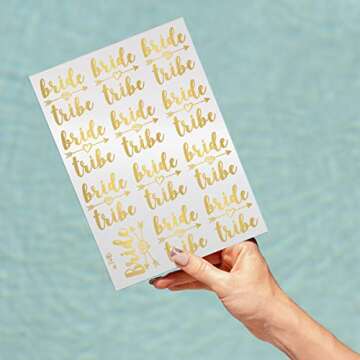 bride bride bride
tribe tribe tribe
bride bride bride
tribe tribe tribe
bride bride bride
tribe tribe tribe
Bride bride bride
tribe tribe